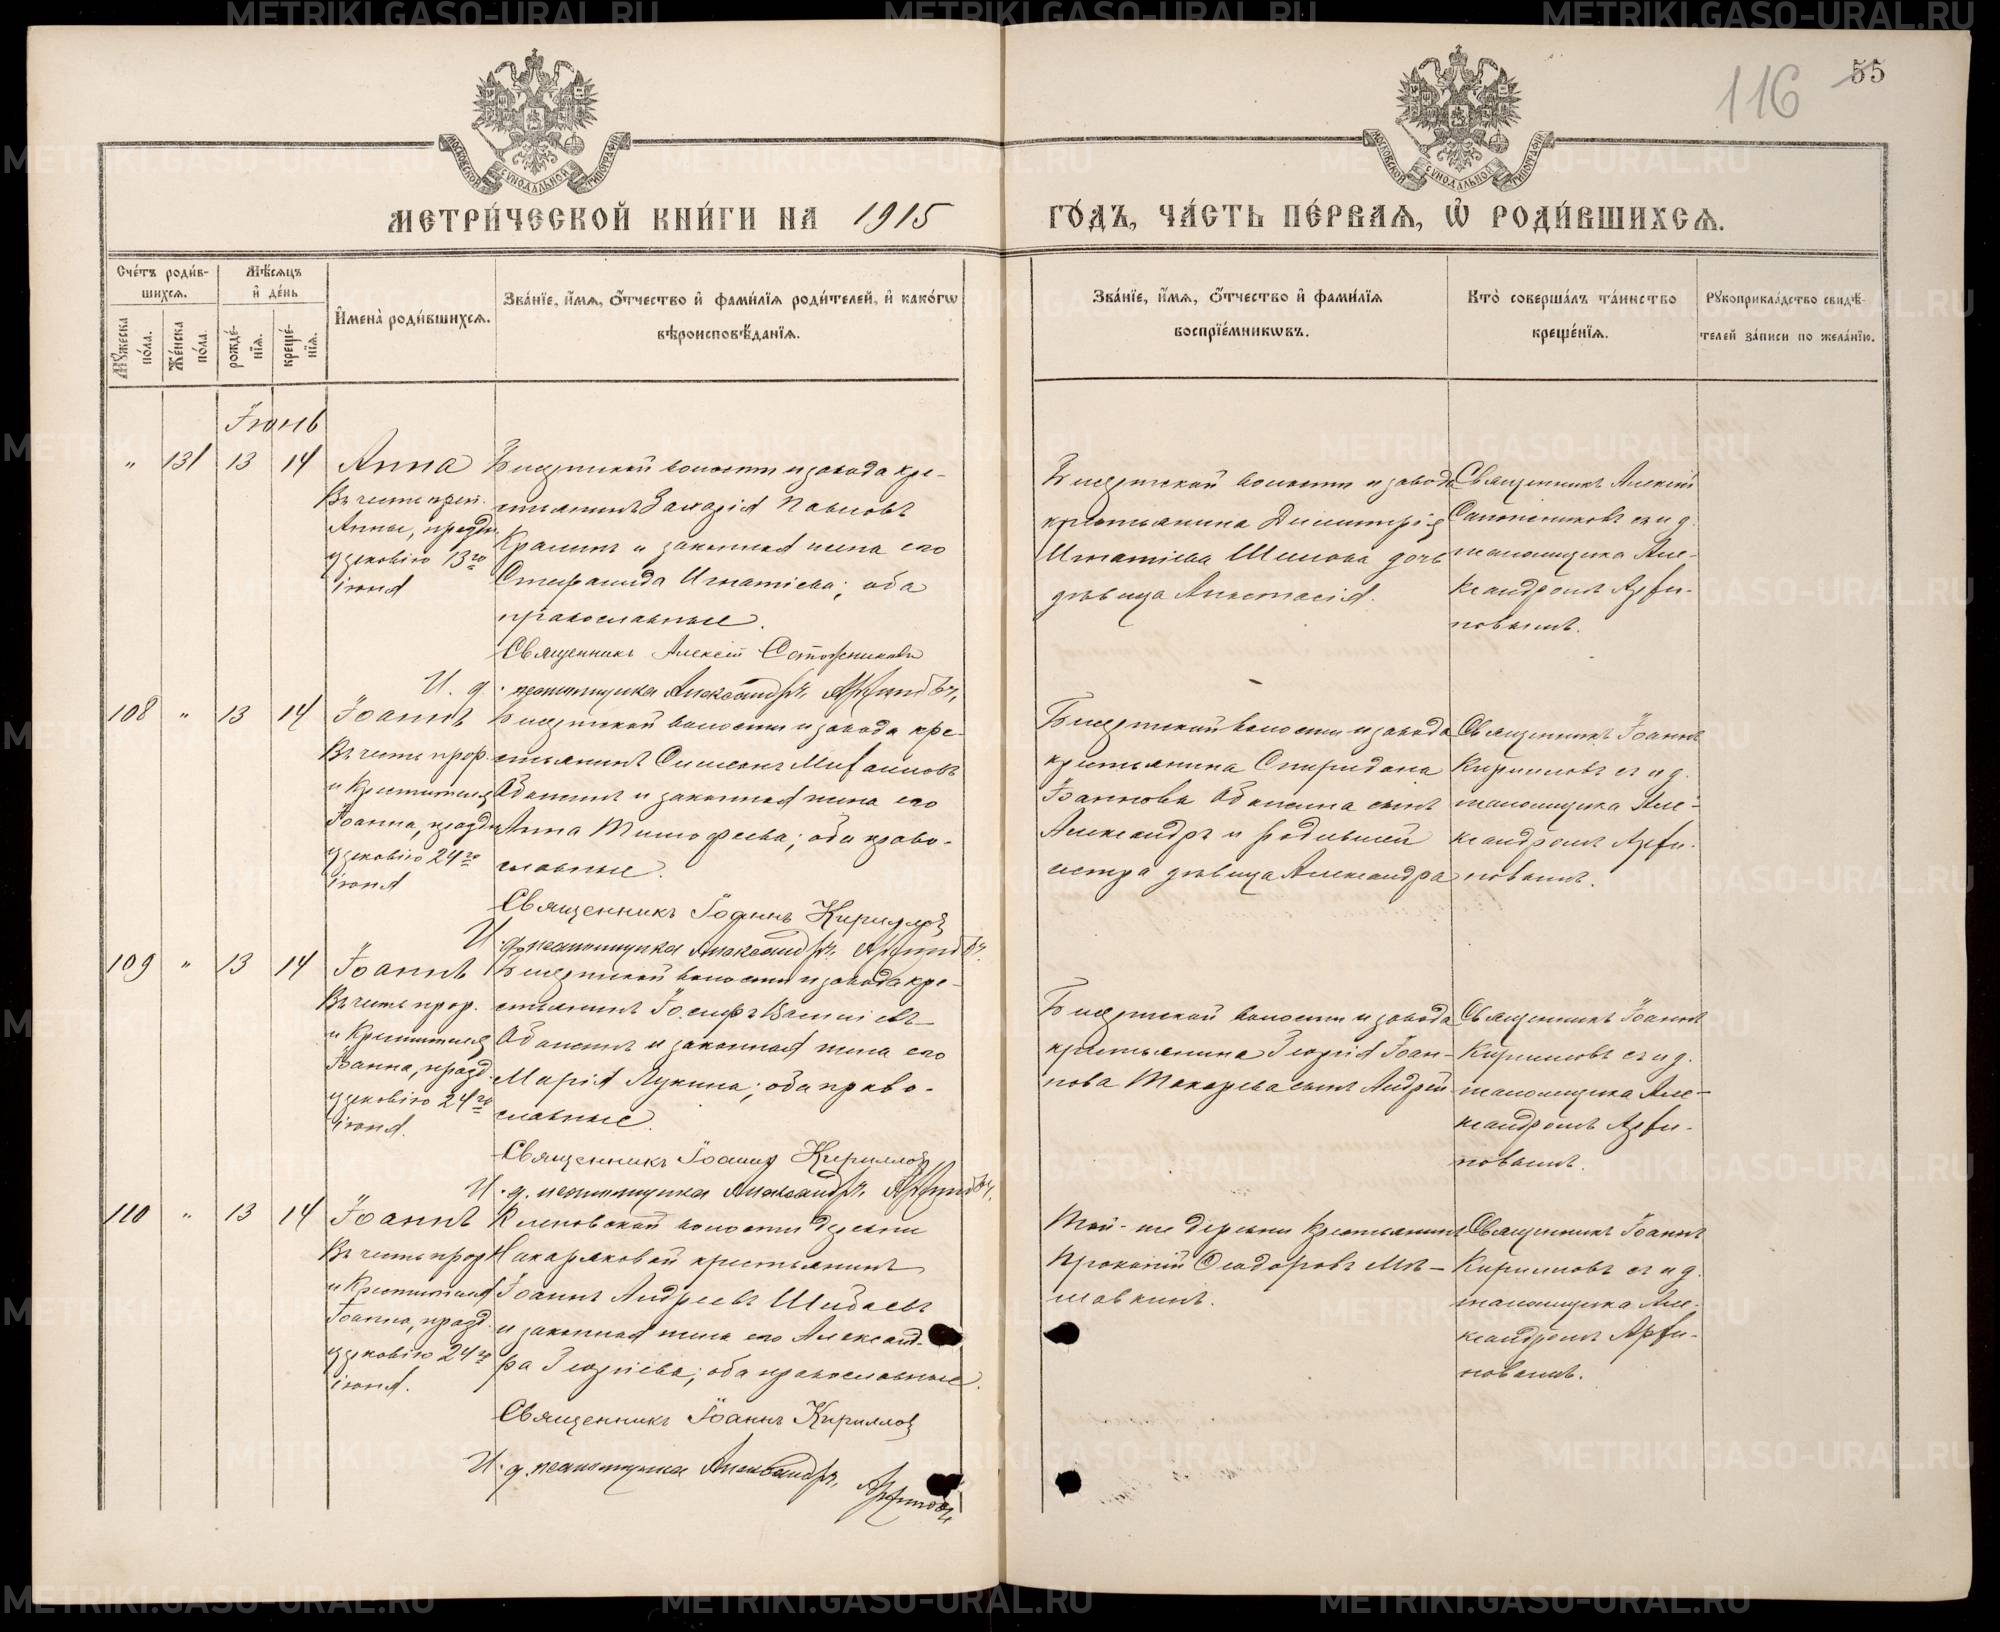 116
55
МОСКОВСКОЙ СѴНОДАЛЬНОЙ ТИПОГРАФІИ
МОСКОВСКОЙ СѴНОДАЛЬНОЙ ТИПОГРАФІИ
МЕТРИ́ЧЕСКОЙ КНИ́ГИ НА 1915 ГО́ДЪ, ЧА́СТЬ ПЕ́РВАЯ, Ѿ РОДИ́ВШИХСЯ.
Сче́тъ роди́вшихся.
Му́жеска по́ла.
Же́нска по́ла.
Мѣ́сяцъ и де́нь
рожде́нїя.
креще́нїя.
Имена̀ роди́вшихся.
Зва́нїе, и́мя, о́тчество и фами́лїя роди́телей, и како́гѡ
вѣроисповѣ́данїя.
Зва́нїе, и́мя, о́тчество и фами́лїя
воспрїе́мникѡвъ.
Кто̀ соверша́лъ та́инство
креще́нїя.
Рукоприкла́дство свидѣ́-
телей за́писи по жела́нїю.
Іюнь
" 131 13 14 Анна
Въ честь прп.
Анны, праздн.
церковію 13го
іюня
Бисертской волости и завода кре-
стьянинъ Захарія Павловъ
и законная жена его
Игнатіева; оба
православные.
Священникъ Алексій Сапожниковъ
И. д. псаломщика Александръ
Бисертской волости и завода
крестьянина Димитрія
Игнатіева Шилова дочь
дѣвица Анастасія.
Священникъ Алексій
Сапожниковъ съ и д.
псаломщика Але-
ксандромъ
108 " 13 14 Іоаннъ
Въ честь прор.
и Крестителя
Іоанна, праздн
церковію 24го
іюня
Бисертской волости и завода кре-
стьянинъ Симеонъ Михаиловъ
и законная жена его
Анна Тимофеева; оба право-
славные.
Священникъ Іоаннъ Кирилловъ
И. д. псаломщика Александръ
Бисертской волости и завода
крестьянина Спиридона
Іоаннова сынъ
Александръ и родившей
сестра дѣвица Александра
Священникъ Іоаннъ
Кирилловъ съ и д.
псаломщика Але-
ксандромъ
109 " 13 14 Іоаннъ
Въ честь прор.
и Крестителя
Іоанна, празд.
церковію 24го
іюня.
Бисертской волости и завода кре-
стьянинъ Іосифъ
и законная жена его
Марія Лукина; оба право-
славные.
Священникъ Іоаннъ Кирилловъ
И. д. псаломщика Александръ
Бисертской волости и завода
крестьянина Георгія Іоан-
нова Токарева сынъ Андрей
Священникъ Іоаннъ
Кирилловъ съ и д.
псаломщика Але-
ксандромъ
110 " 13 14 Іоаннъ
Въ честь прор
и Крестителя
Іоанна, празд.
церковію 24го
іюня.
Кленовской волости деревни
Накаряковой крестьянинъ
Іоаннъ Андреевъ
и законная жена его Александ-
ра Георгіева; оба православные.
Священникъ Іоаннъ Кирилловъ
И. д. псаломщика Александръ
Той-же деревни крестьянинъ
Прокопій Ѳеодоровъ
Священникъ Іоаннъ
Кирилловъ съ и д.
псаломщика Але-
ксандромъ
METRIKI.GASO-URAL.RU